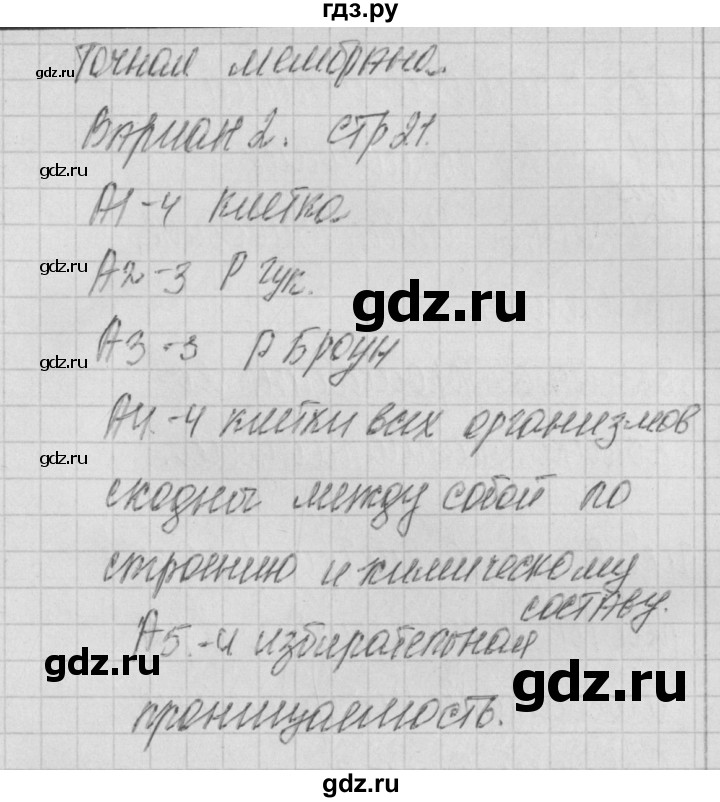 гдз.ру
точная мембрана.
gdz.ru
Вариан 2. стр 21.
gdz.ru
А1-4 клетка
А2-3 Р Гук.
gdz.ru
gdz.ru
А3-3 Р Броун
gdz.ru
А4.-4 клетки всех организмов
gdz.ru
сходны между собой по
строению и химическому
составу.
А5.-4 избирательная
gdz.ru
gdz.ru
проницаемость.
gdz.ru